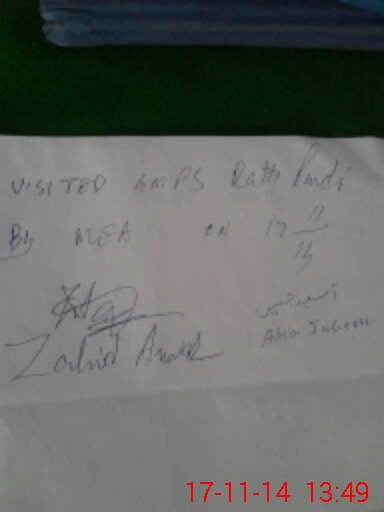 VISITED GMPS Ratti Pindi
By MEA ON 17 11/14
Zahid Anwar
آسیہ
Asia
17-11-14 13:49